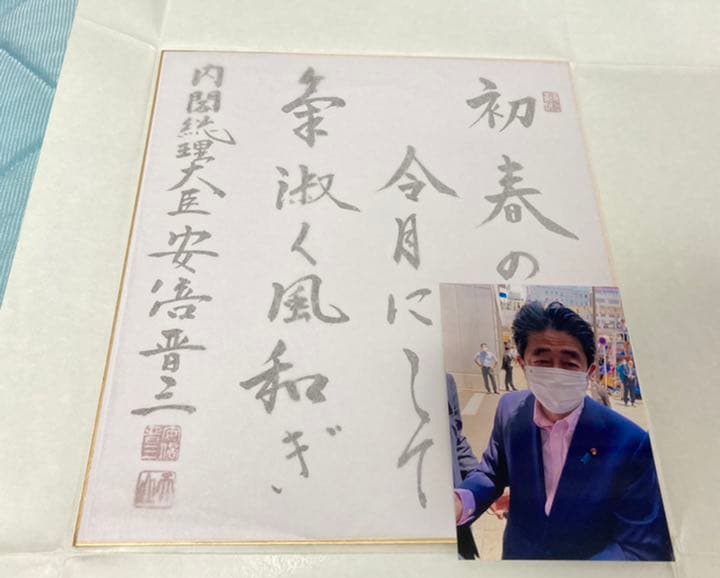 初春の
令月にして
氣淑く風和ぎ
内閣総理大臣安倍晋三